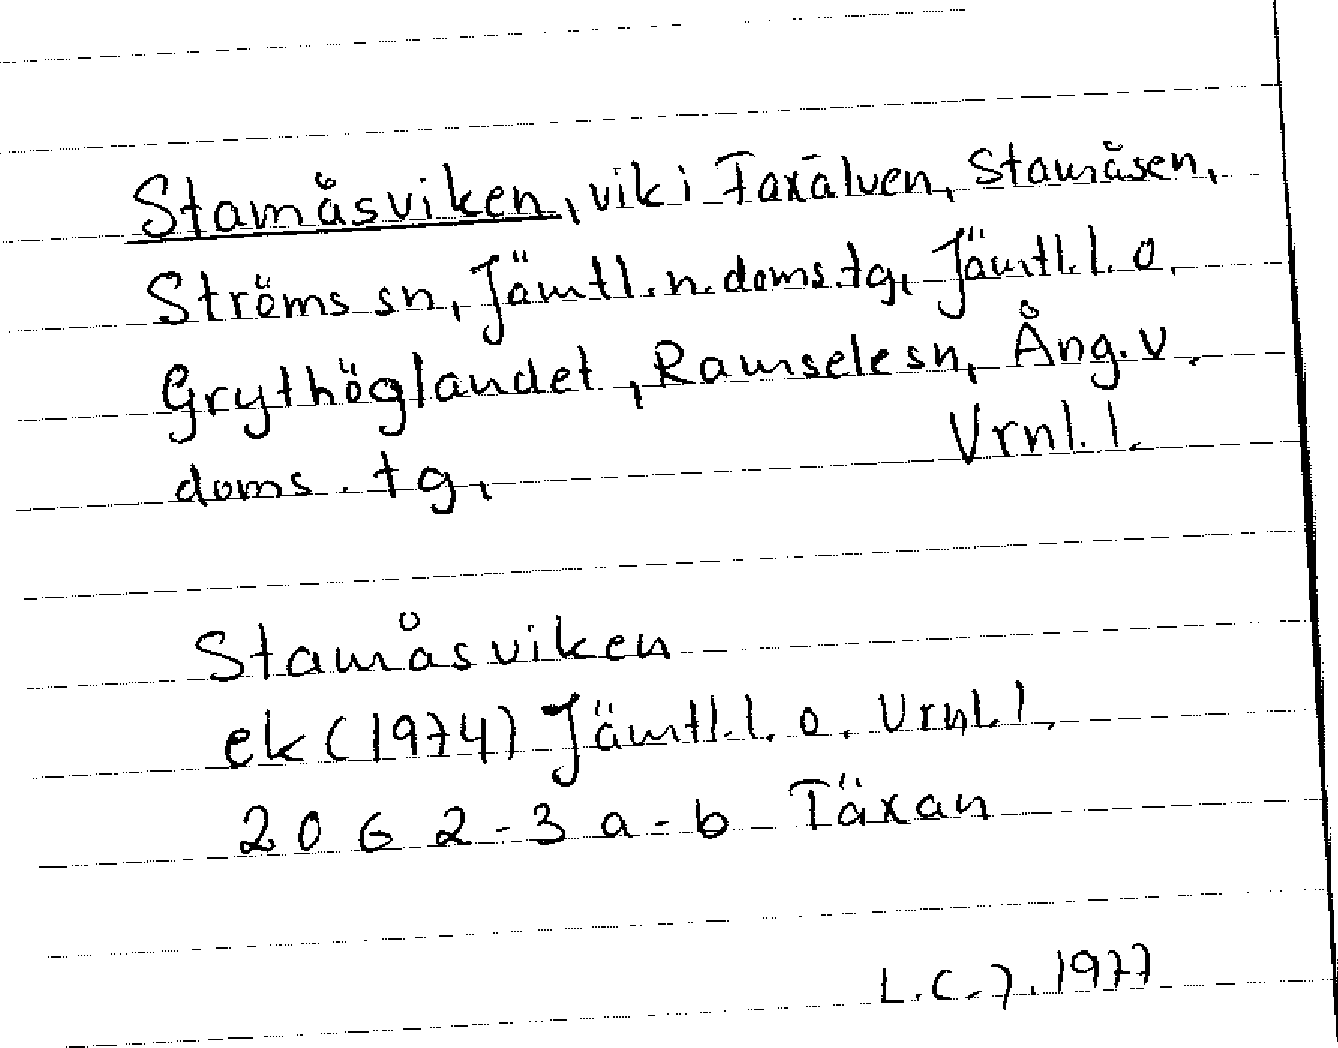 Stamåsviken, vik i Faxälven, Stamåsen,
Ströms sn, Jämtl. n. doms. tg, Jämtl. l. o.
Grythöglandet, Ramsele sn, Ång. v.
doms. tg, Vrnl. l.
Stamåsviken
ek (1974) Jämtl. l. o. Vrnl. l.
2062-3 a-b Täxan
L. C. 7. 1977